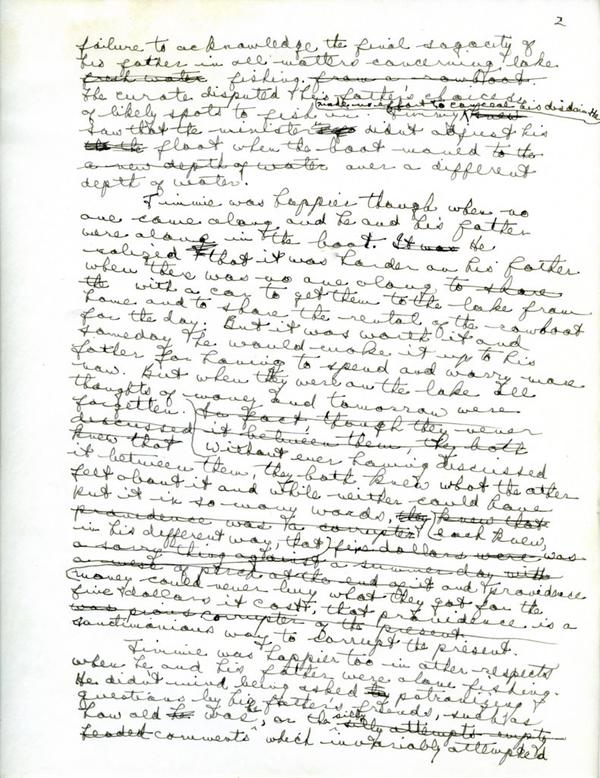 2
failure to acknowledge the final sagacity of
his father in all matters concerning lake
fresh water fishing. from a rowboat.
The curate disputed his father's choices
of likely spots to fish in. Jimmy knew
made no effort to conceal his disdain the
saw that the minister didn't adjust his
float when the boat moved to the
a new depth of water over a different
depth of water.
Jimmie was happier though when no
one came along and he and his father
were alone in the boat. It was He
realized that it was harder on his father
when there was no one along to share
the with a car to get them to the lake from
home and to share the rental of the rowboat
for the day. But it was worth it and
someday he would make it up to his
father for having to spend and worry more
now. But when they were on the lake all
thoughts of money and tomorrow were
forgotten. In fact, though they never
discussed it between them, they both
knew that without ever having discussed
it between them, they both knew what the other
felt about it and while neither could have
put it in so many words, they knew that
providence was a corrupter each knew,
in his different way, that five dollars were was
a sorry thing against a summer day with
a mess of perch at the end of it and providence
money could never buy what they got for the
five dollars it cost, that providence is a
was pious corrupter of the present
sanctimonious way to corrupt the present.
Jimmie was happier too in other respects
when he and his father were alone fishing.
He didn't mind being asked patronizing
questions by his father's friends, such as
how old he was, or the silly attempts empty
headed comments which invariably attempted